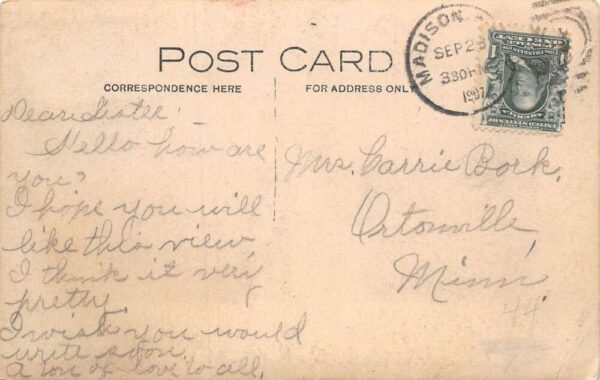 POST CARD
CORRESPONDENCE HERE
FOR ADDRESS ONLY
MADISON
SEP 23
330 PM
1907
Dear Sister
Hello how are
you?
I hope you will
like this view
I think it very
pretty.
I wish you would
write soon.
A ton of love to all,
Mrs. Carrie Bork,
Ortonville,
Minn.
44